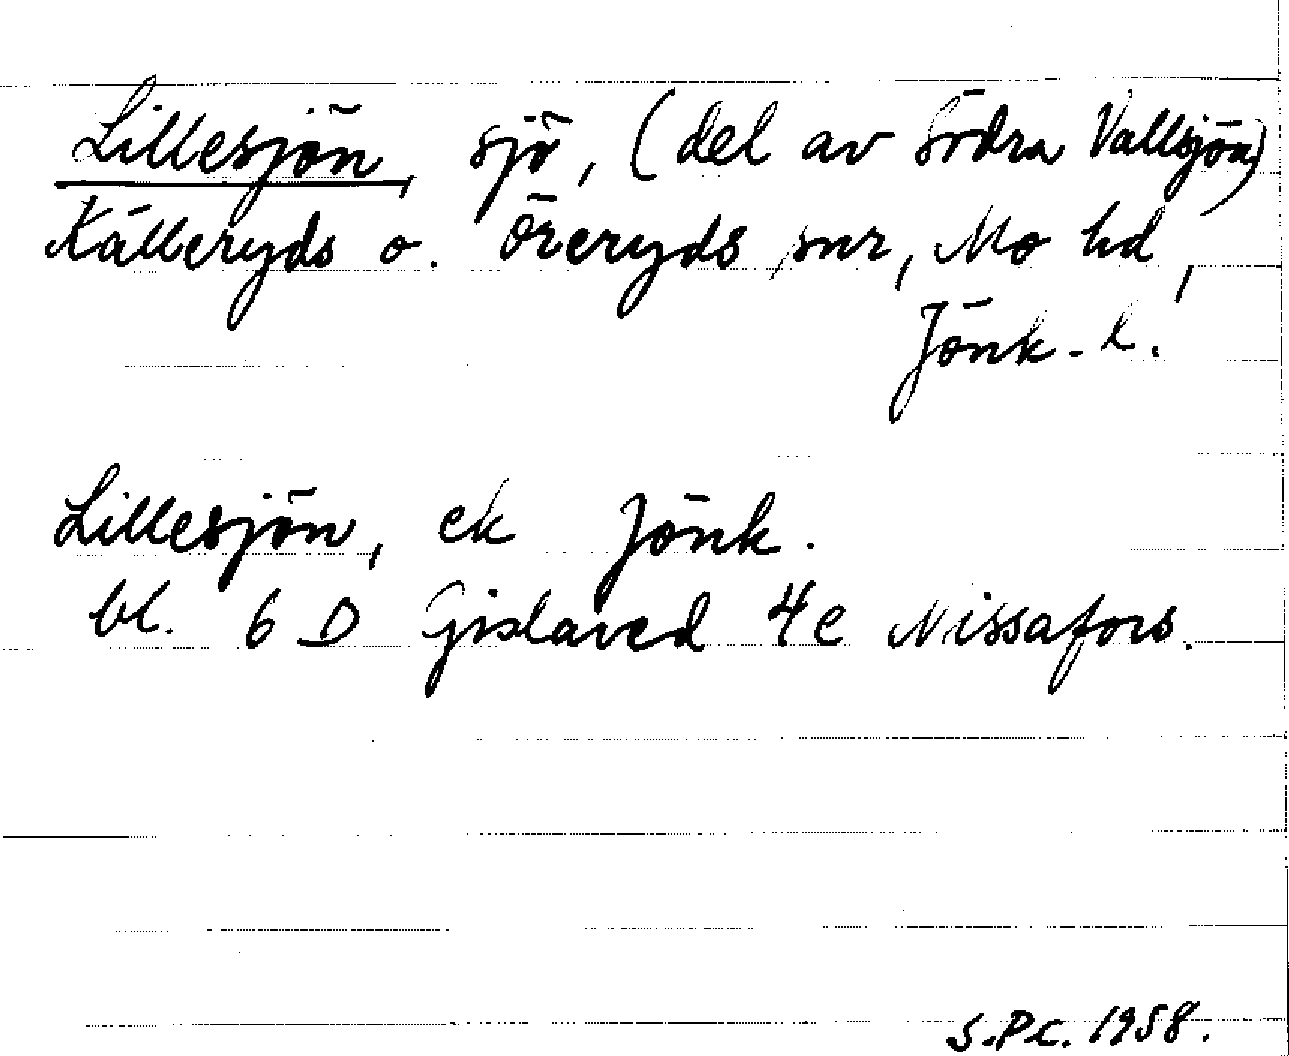 Lillesjön, sjö, (del av Södra Vallsjön)
Källeryds o. Öreryds snr, Mo hd,
Jönk. l.
Lillesjön, ek Jönk.
bl. 6 D Gislaved 4e Nissafors.
S.P.c. 1958.